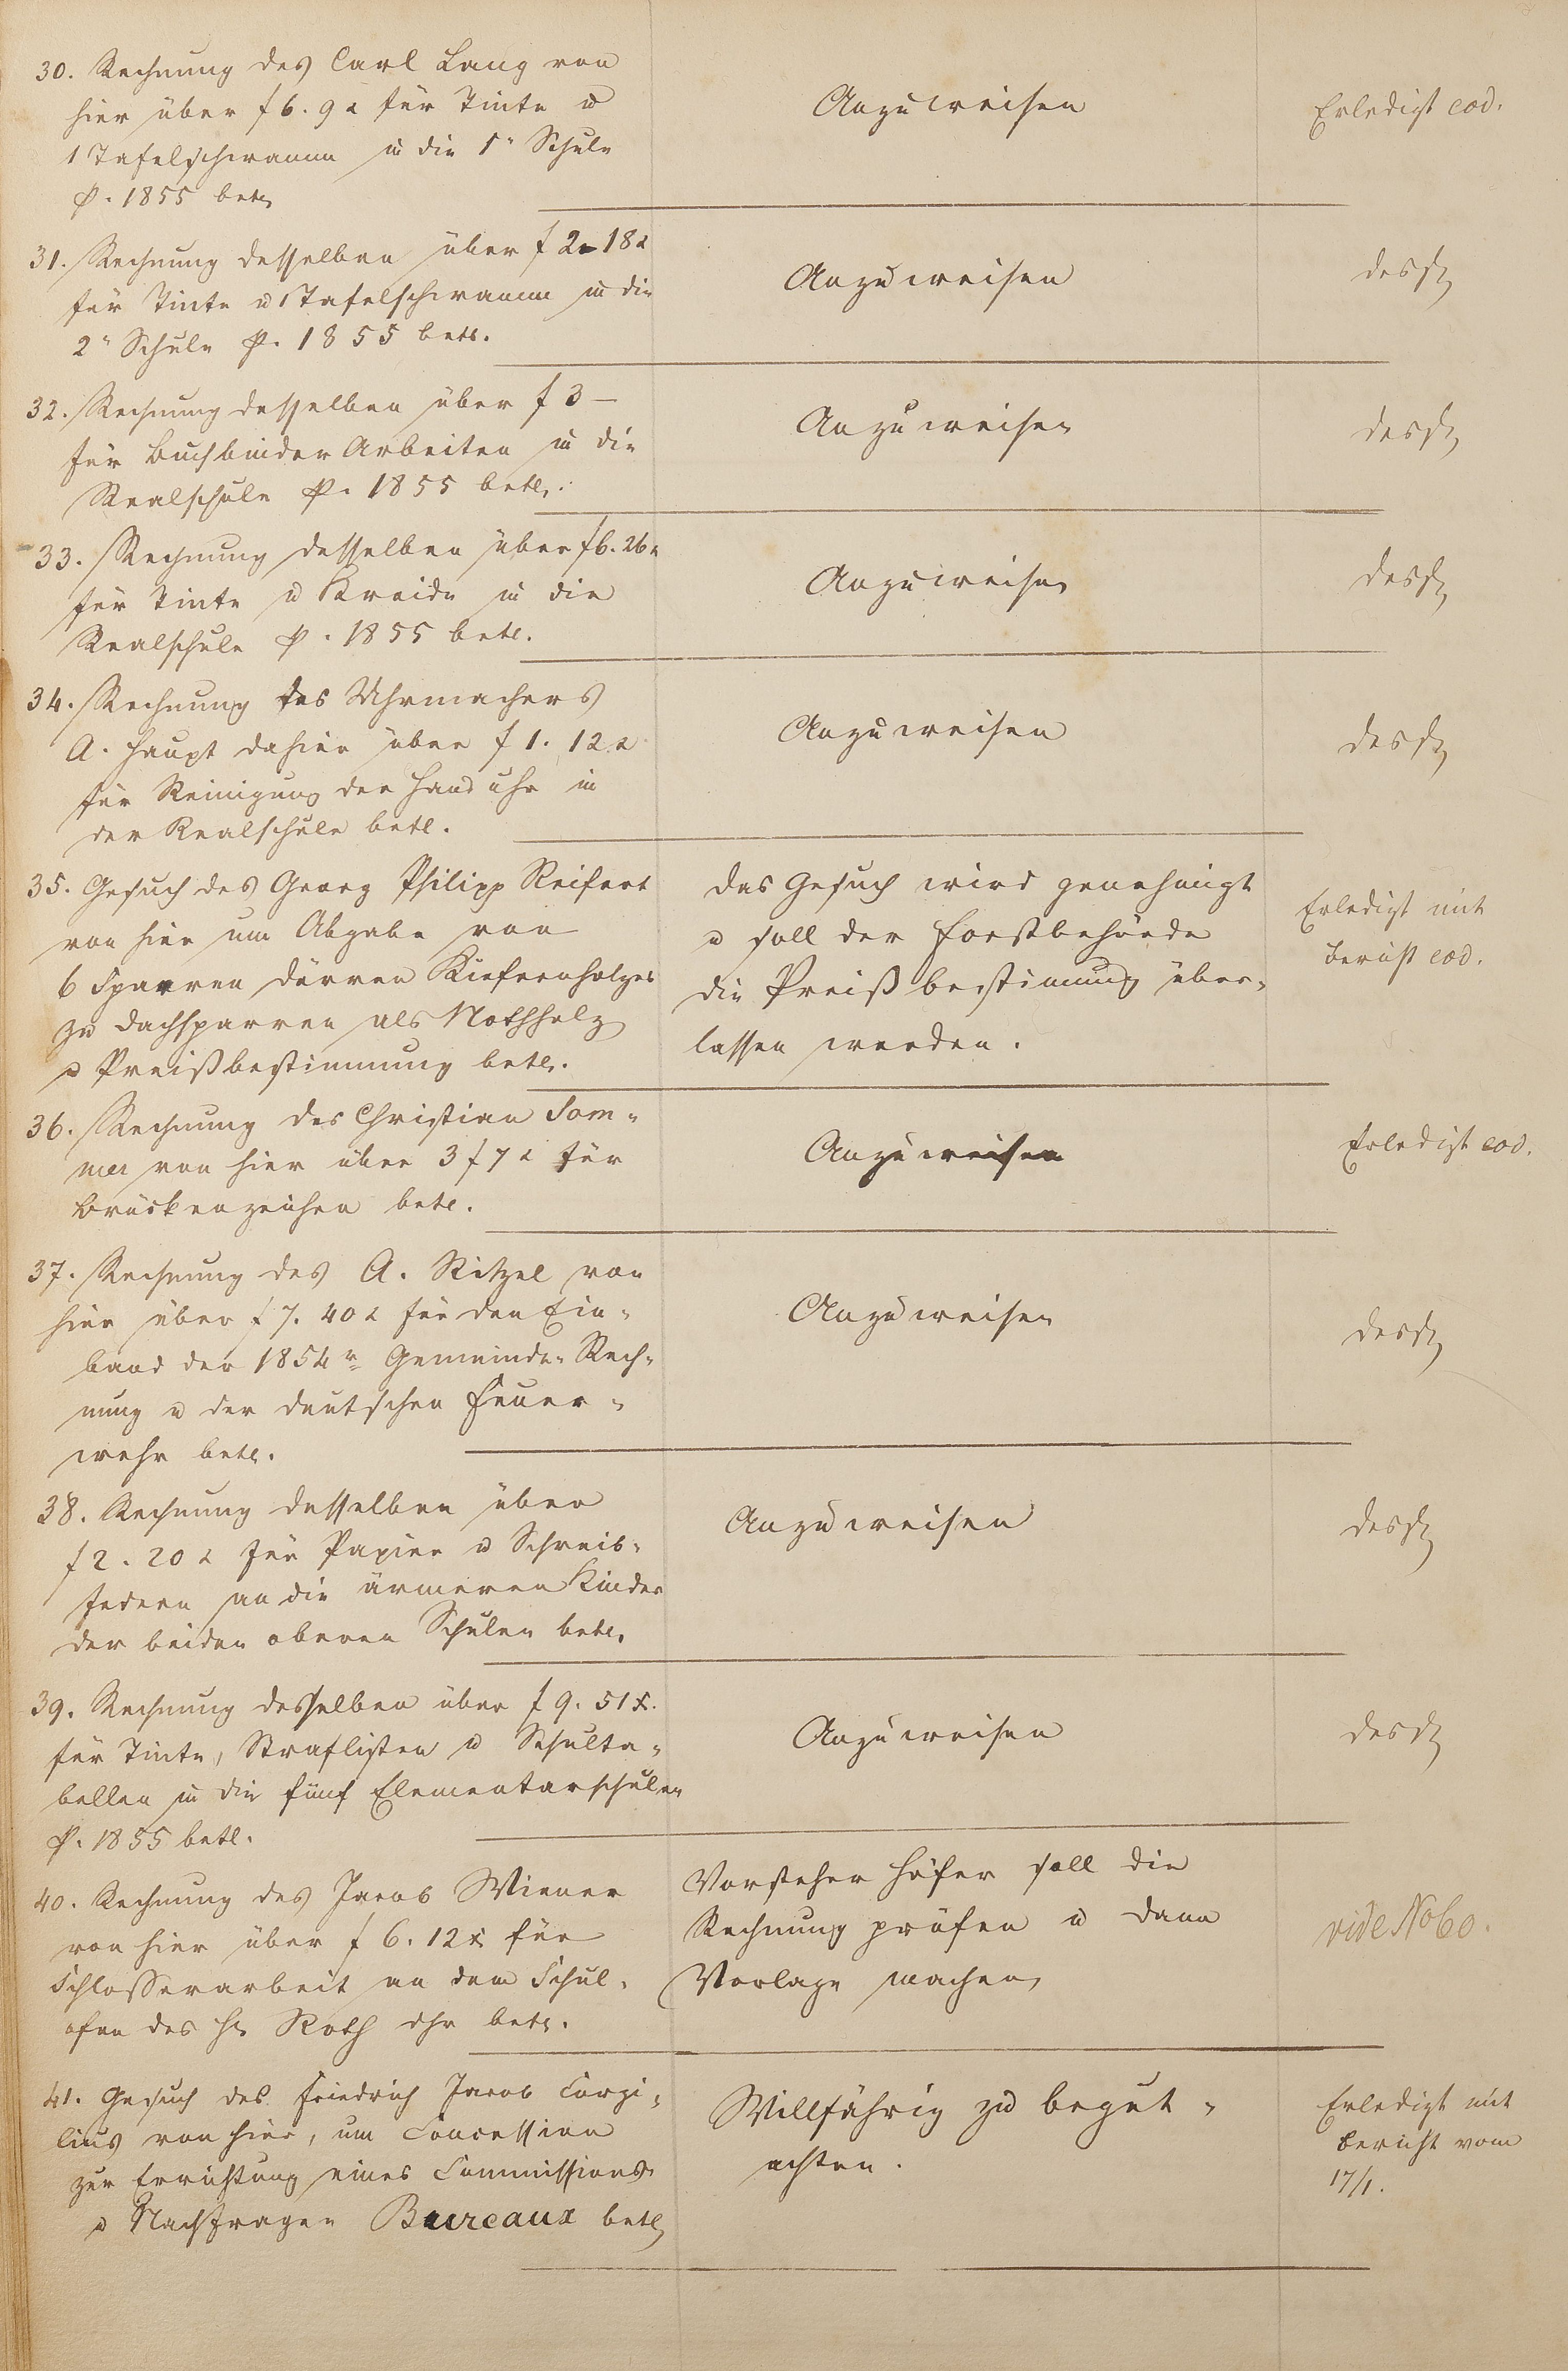 30. Rechnung des Carl Lang von
hier über f 6. 9 x für Tinte u
1 Tafelschwamm in die 1" Schule
p. 1855 betr.
Anzuweisen
Erledigt eod.
31. Rechnung desselben über f 2 - 18 x
für Tinte u 1 Tafelschwamm in die
2" Schule p. 1855 betr.
Anzuweisen
desgl.
32. Rechnung desselben über f 3 –
für Buchbinder Arbeiten in die
Realschule p. 1855 betr.
Anzuweisen
desgl.
33. Rechnung desselben über f 6. 26 x
für Tinte u Kreide in die
Realschule p. 1855 betr.
Anzuweisen
desgl.
34. Rechnung des Uhrmachers
A. Haupt dahier über f 1. 12 x
für Reinigung der Hand uhr in
der Realschule betr.
Anzuweisen
desgl.
35. Gesuch des Georg Philipp Reifert
von hier um Abgabe von
6 Sparren dürren Kiefernholzes
zu Dachsparren als Nothholz
u Preißbestimmung betr.
Das Gesuch wird genehmigt
u soll der Forstbehörde
die Preißbestimung über-
lassen werden.
Erledigt mit
Bericht eod.
36. Rechnung des Christian Som-
mer von hier über 3 f 7 x für
Brückenzeichen betr.
Anzuweisen
Erledigt eod.
37. Rechnung des A. Ritzel von
hier über f 7. 40 x für den Ein-
band der 1854r Gemeinde-Rech-
nung u der deutschen Feuer-
wehr betr.
Anzuweisen
desgl.
38. Rechnung desselben über
f 2. 20 x für Papier u Schreib-
federn an die ärmeren Kinder
der beiden oberen Schulen betr.
Anzuweisen
desgl.
39. Rechnung desselben über f 9. 51 x.
für Tinte, Straflisten u Schulta-
bellen in die fünf Elementarschulen
p. 1855 betr.
Anzuweisen
desgl.
40. Rechnung des Jacob Wiener
von hier über f 6. 12 x für
Schlosserarbeit an dem Schul-
ofen des H. Roth dhr betr.
Vorsteher Höfer soll die
Rechnung prüfen u dann
Vorlage machen
vide No 60.
41. Gesuch des Friedrich Jacob Corzi-
lius von hier, um Concession
zur Errichtung eines Commissions
u Nachfragen Bureaux betr.
Willfährig zu begut-
achten.
Erledigt mit
Bericht vom
17/1.